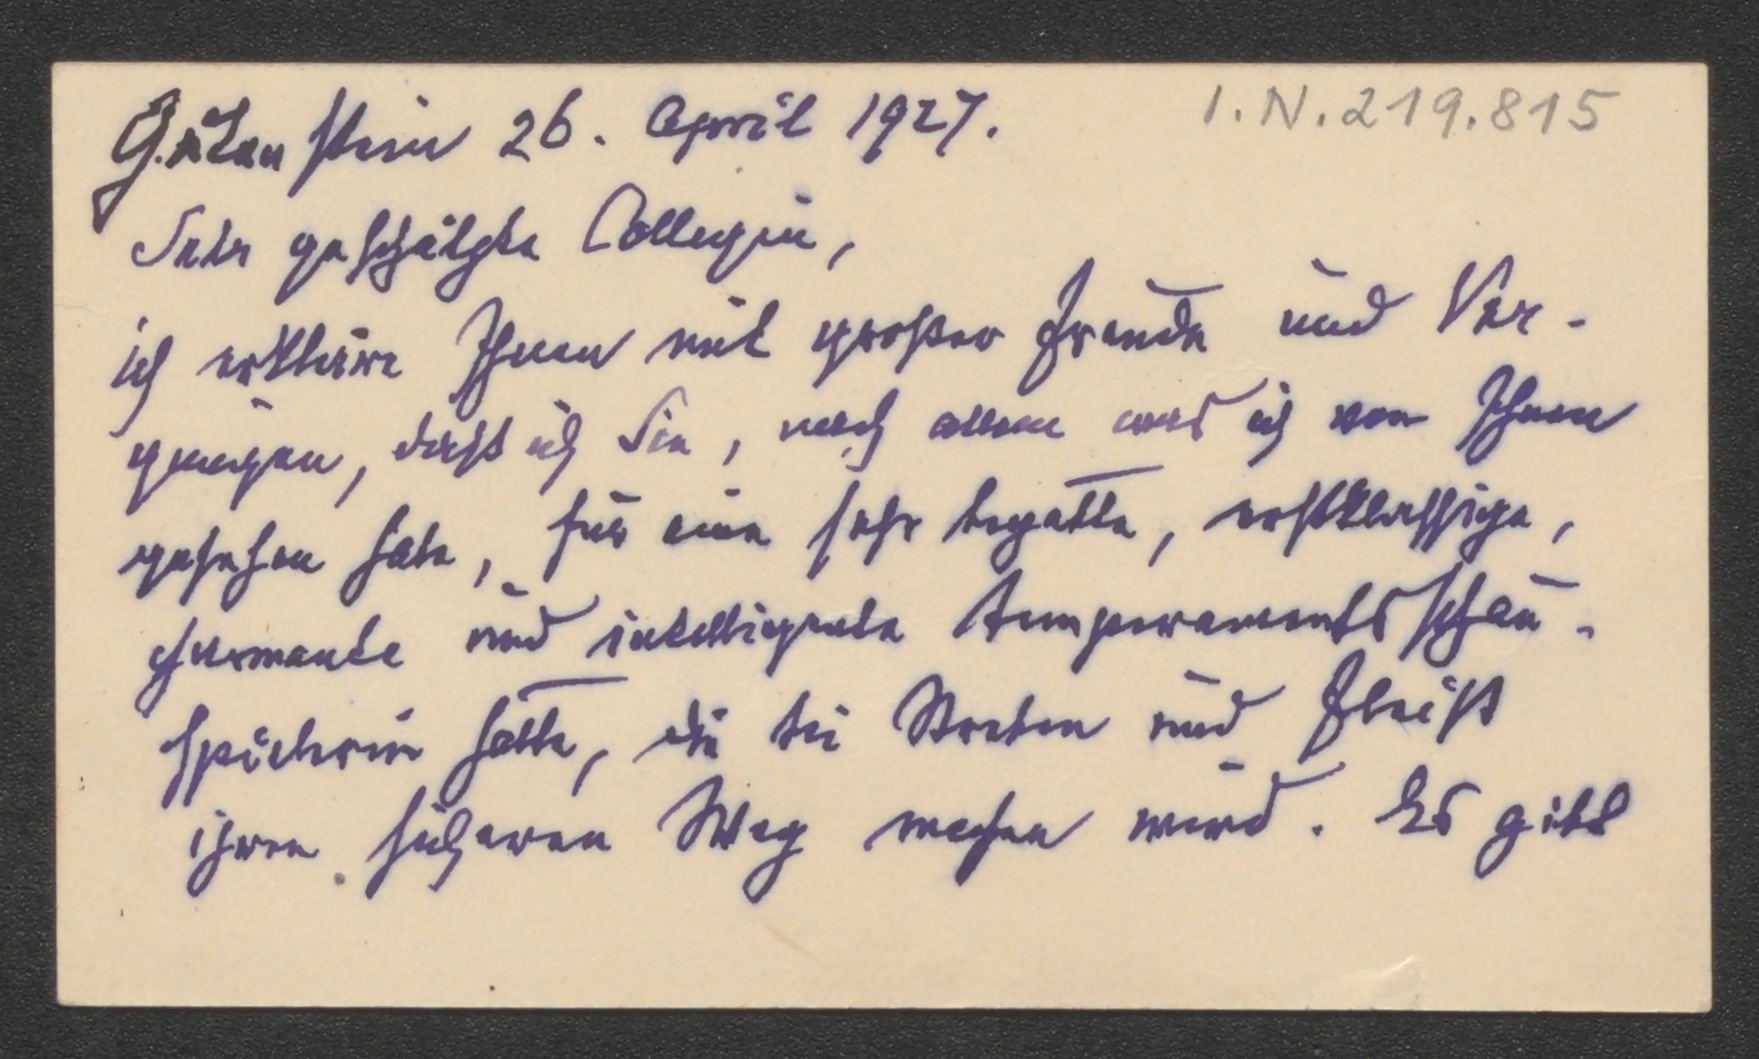 Gutenstein 26. April 1927. I.N.219.815
Sehr geschätzte Collegin,
ich erkläre Ihnen mit großer Freude und Ver-
gnügen, daß ich Sie, nach allem was ich von Ihnen
gesehen habe, für eine sehr begabte, erstklassige,
charmante und intelligente Temperamentsschau-
spielerin halte, die bei Streben und Fleiß
ihren sicheren Weg machen wird. Es gibt